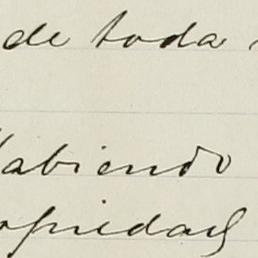 de toda
Habiendo
opiedad